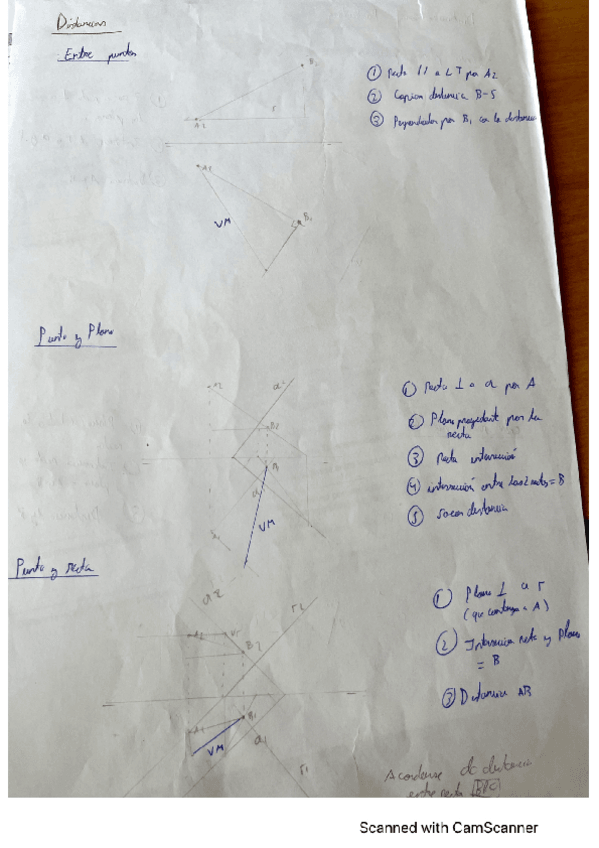 Distancias
Entre puntos
① Recta // a LT por A2
② Copiar distancia B-S
③ Perpendicular por B1 con la distancia
B
S
A2
A1
VM
B1
Punto y Plano
① Recta ⊥ a α por A
② Plano proyectante por la
recta
③ Recta intersección
④ intersección entre las 2 rectas = B
⑤ sacar distancia
A2
α2
B2
B1
VM
Punto y recta
① Plano ⊥ a r
(que contenga a A)
② Intersección recta y Plano
= B
③ Distancia AB
r2
A2
B2
A1
B1
VM
α1
r1
Acordarse de distancia
entre recta
Scanned with CamScanner